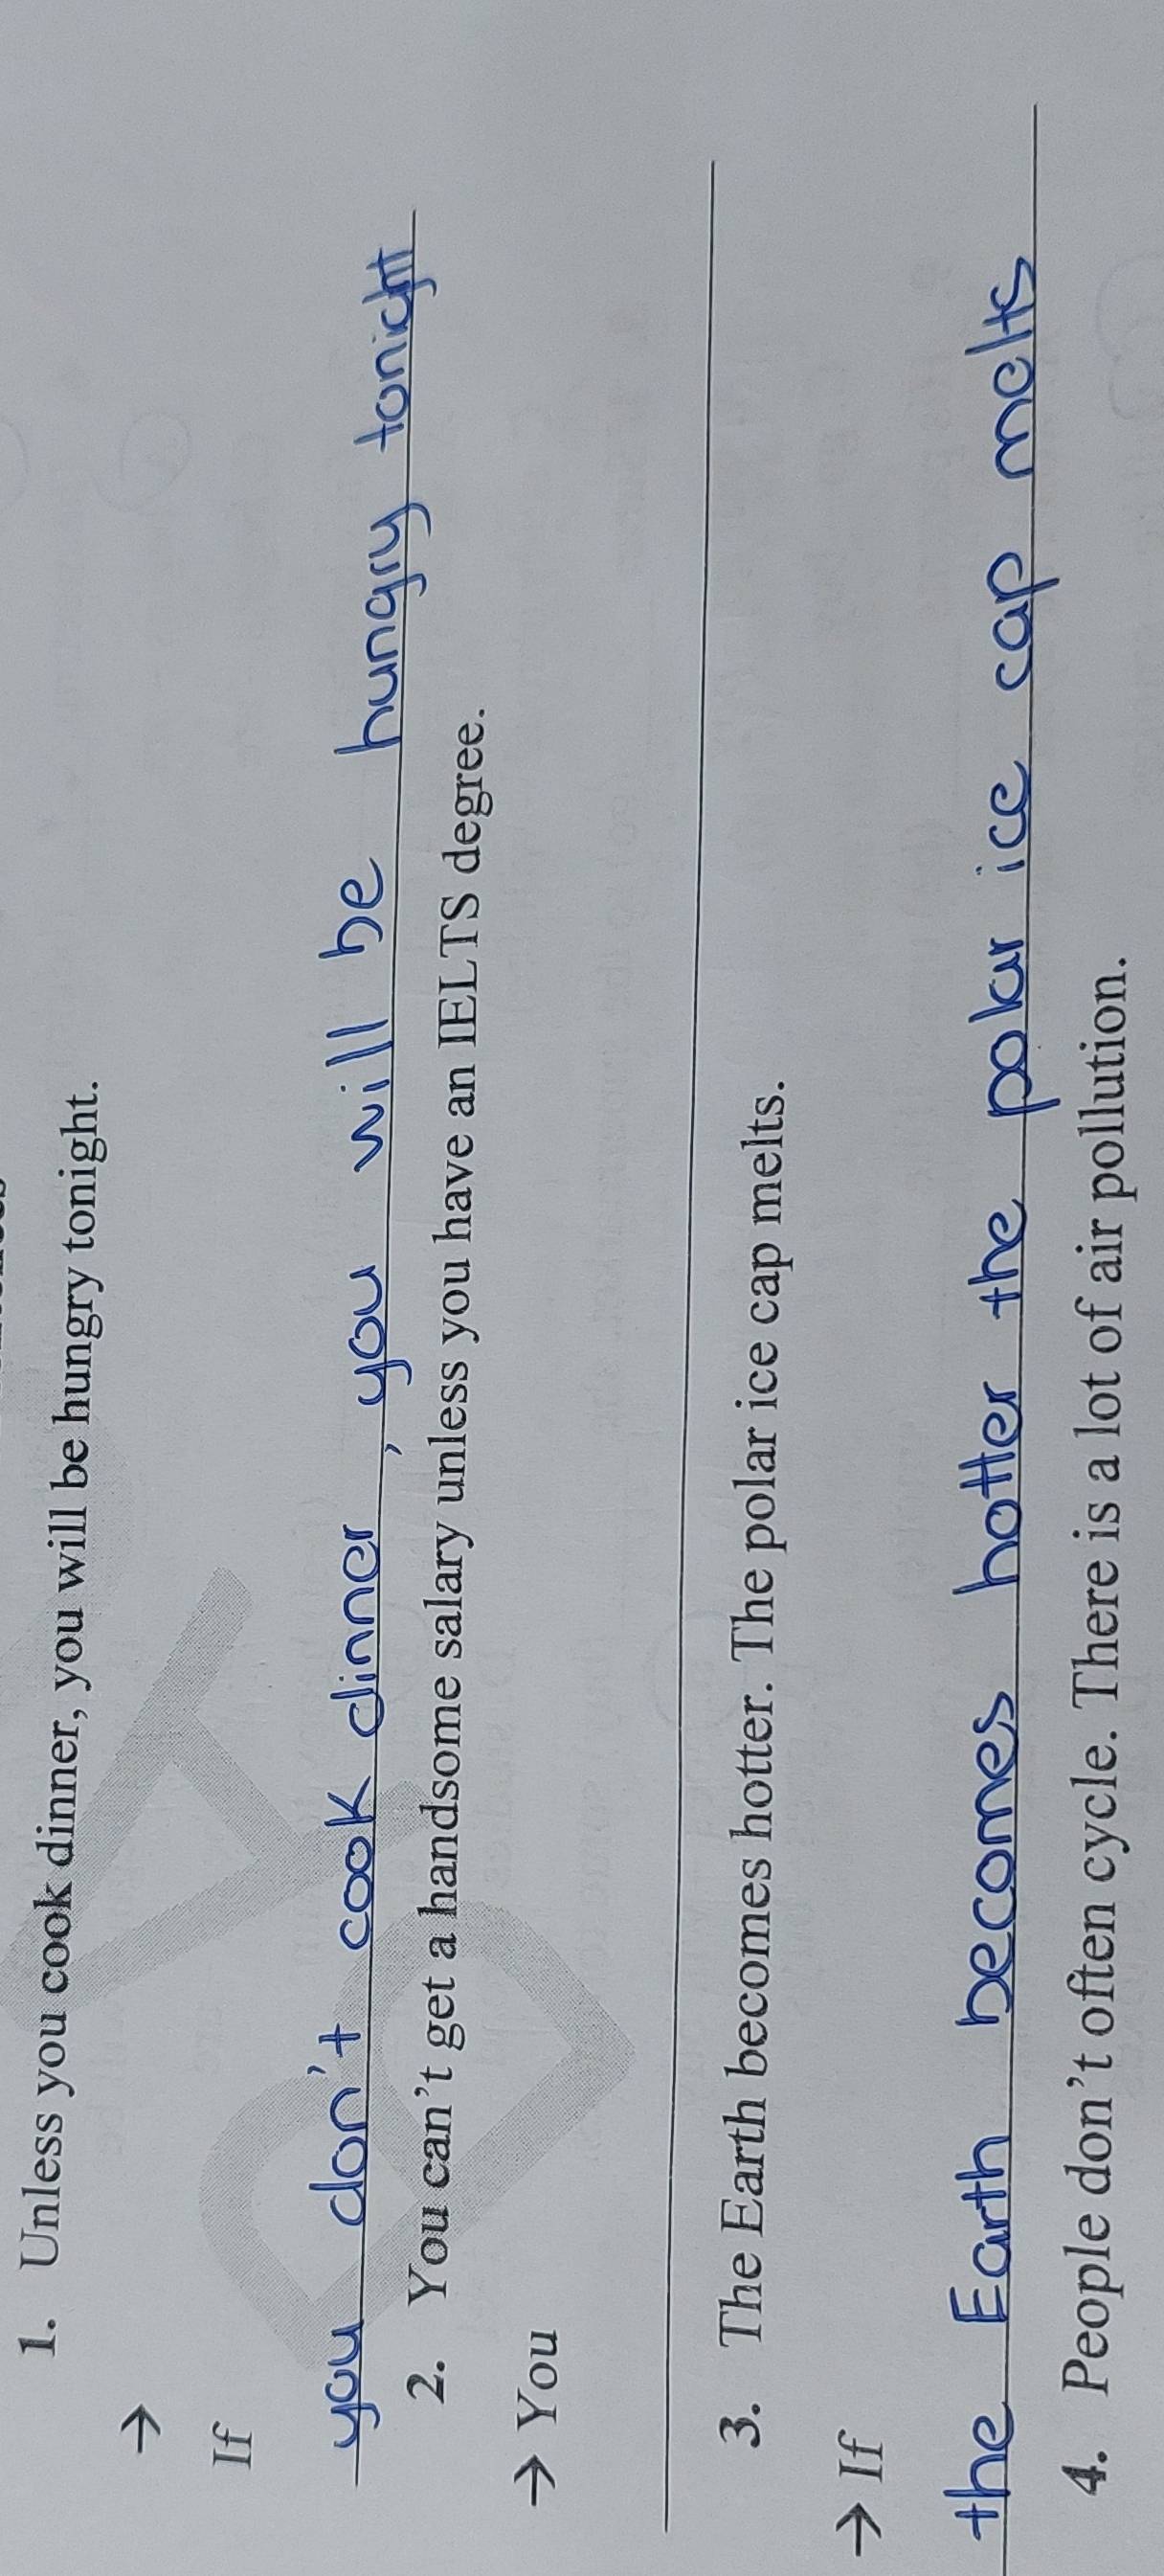 1. Unless you cook dinner, you will be hungry tonight.
→
If
you don't cook dinner, you will be hungry tonight
2. You can't get a handsome salary unless you have an IELTS degree.
→ You
3. The Earth becomes hotter. The polar ice cap melts.
→ If
the Earth becomes hotter the polar ice cap melts
4. People don't often cycle. There is a lot of air pollution.